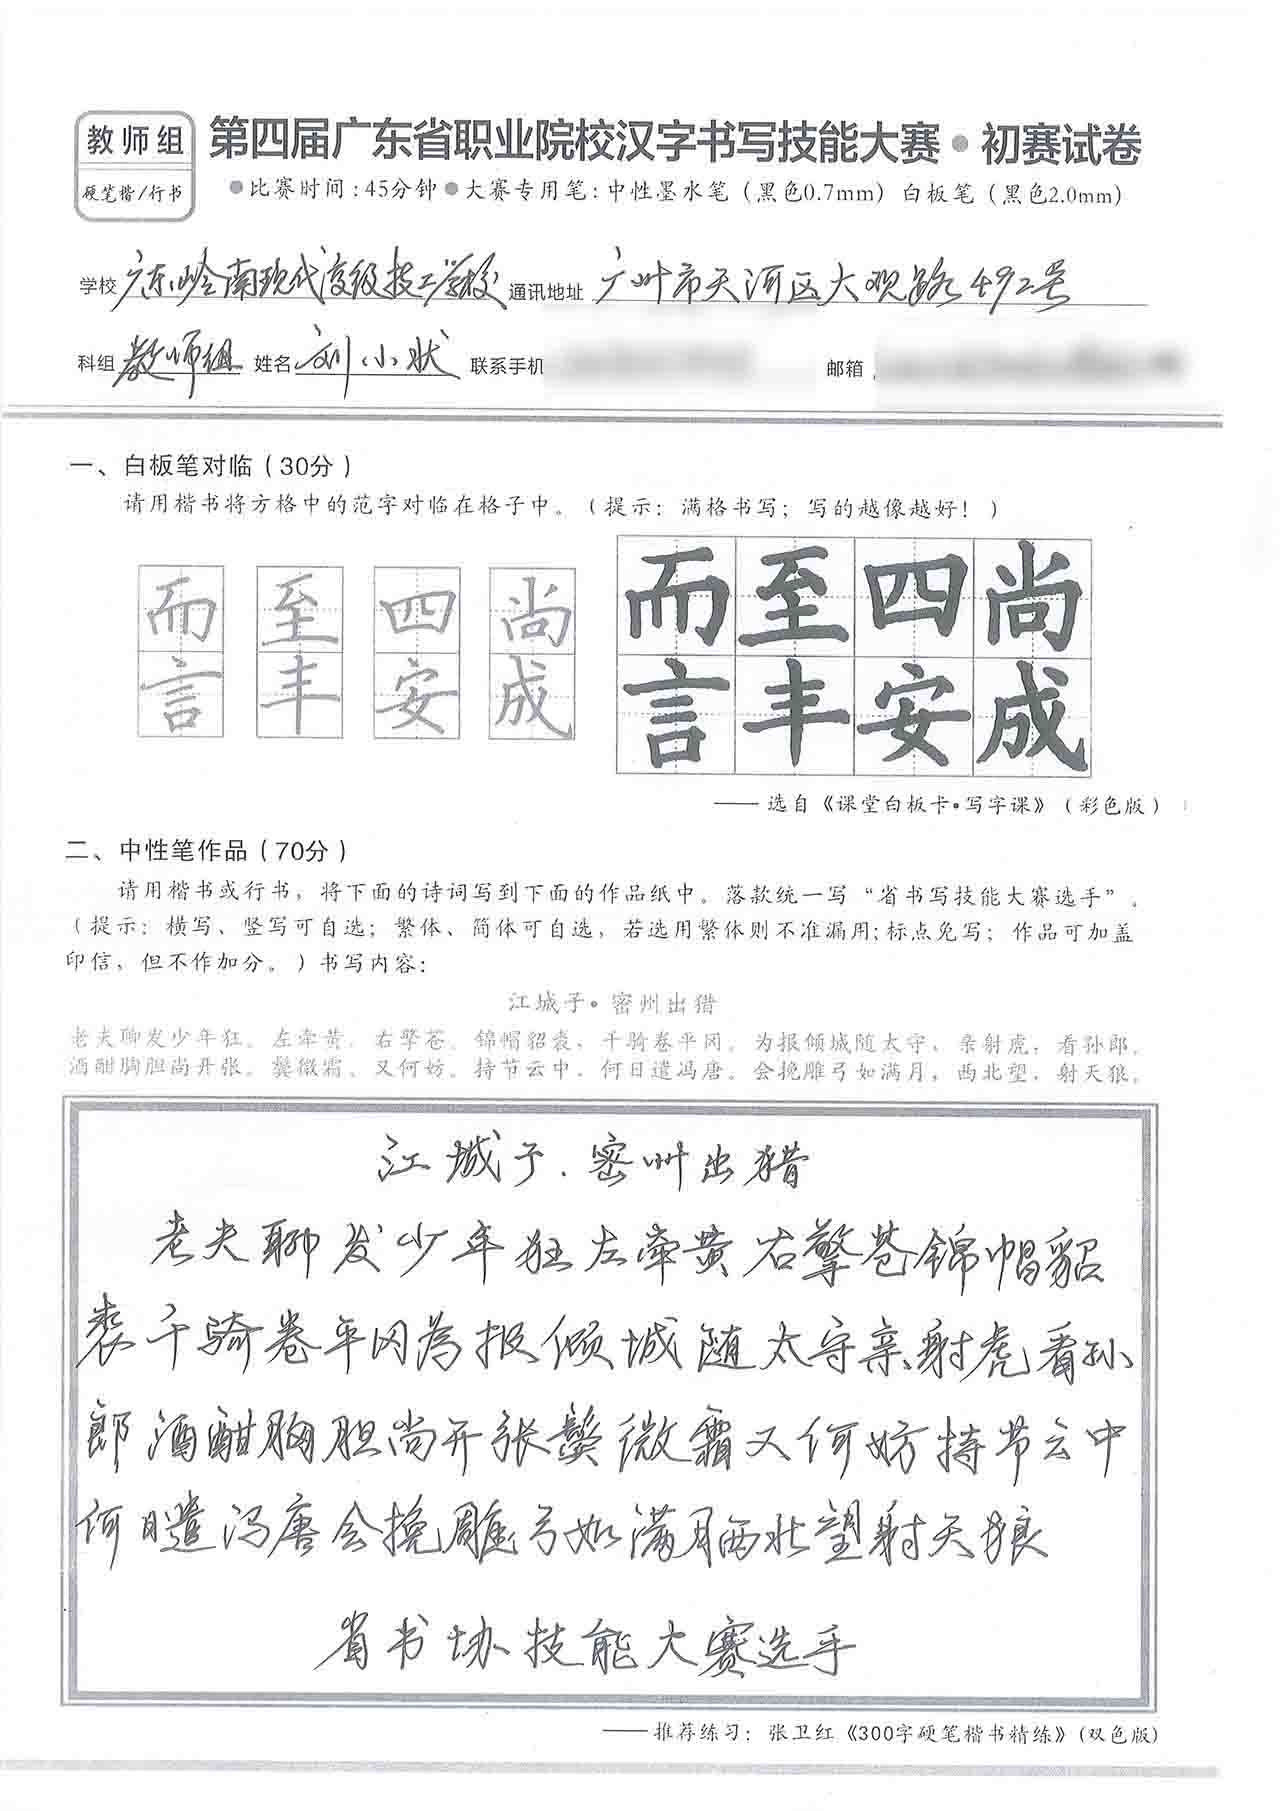 教师组
硬笔楷/行书
第四届广东省职业院校汉字书写技能大赛·初赛试卷
●比赛时间:45分钟●大赛专用笔:中性墨水笔（黑色0.7mm）白板笔（黑色2.0mm）
学校 广东岭南现代高级技工学校 通讯地址 广州市天河区大观路492号
科组 教师组 姓名 刘小状 联系手机 邮箱
一、白板笔对临（30分）
请用楷书将方格中的范字对临在格子中。（提示：满格书写；写的越像越好！）
而 至 四 尚 而至四尚
言 丰 安 成 言丰安成
——选自《课堂白板卡·写字课》（彩色版）
二、中性笔作品（70分）
请用楷书或行书，将下面的诗词写到下面的作品纸中。落款统一写“省书写技能大赛选手”。
（提示：横写、竖写可自选；繁体、简体可自选，若选用繁体则不准漏用;标点免写；作品可加盖
印信，但不作加分。）书写内容：
江城子·密州出猎
老夫聊发少年狂。左牵黄，右擎苍。锦帽貂裘，千骑卷平冈。为报倾城随太守，亲射虎，看孙郎。
酒酣胸胆尚开张。鬓微霜，又何妨。持节云中，何日遣冯唐。会挽雕弓如满月，西北望，射天狼。
江城子.密州出猎
老夫聊发少年狂左牵黄右擎苍锦帽貂
裘千骑卷平冈为报倾城随太守亲射虎看孙
郎酒酣胸胆尚开张鬓微霜又何妨持节云中
何日遣冯唐会挽雕弓如满月西北望射天狼
省书协技能大赛选手
——推荐练习：张卫红《300字硬笔楷书精练》(双色版)